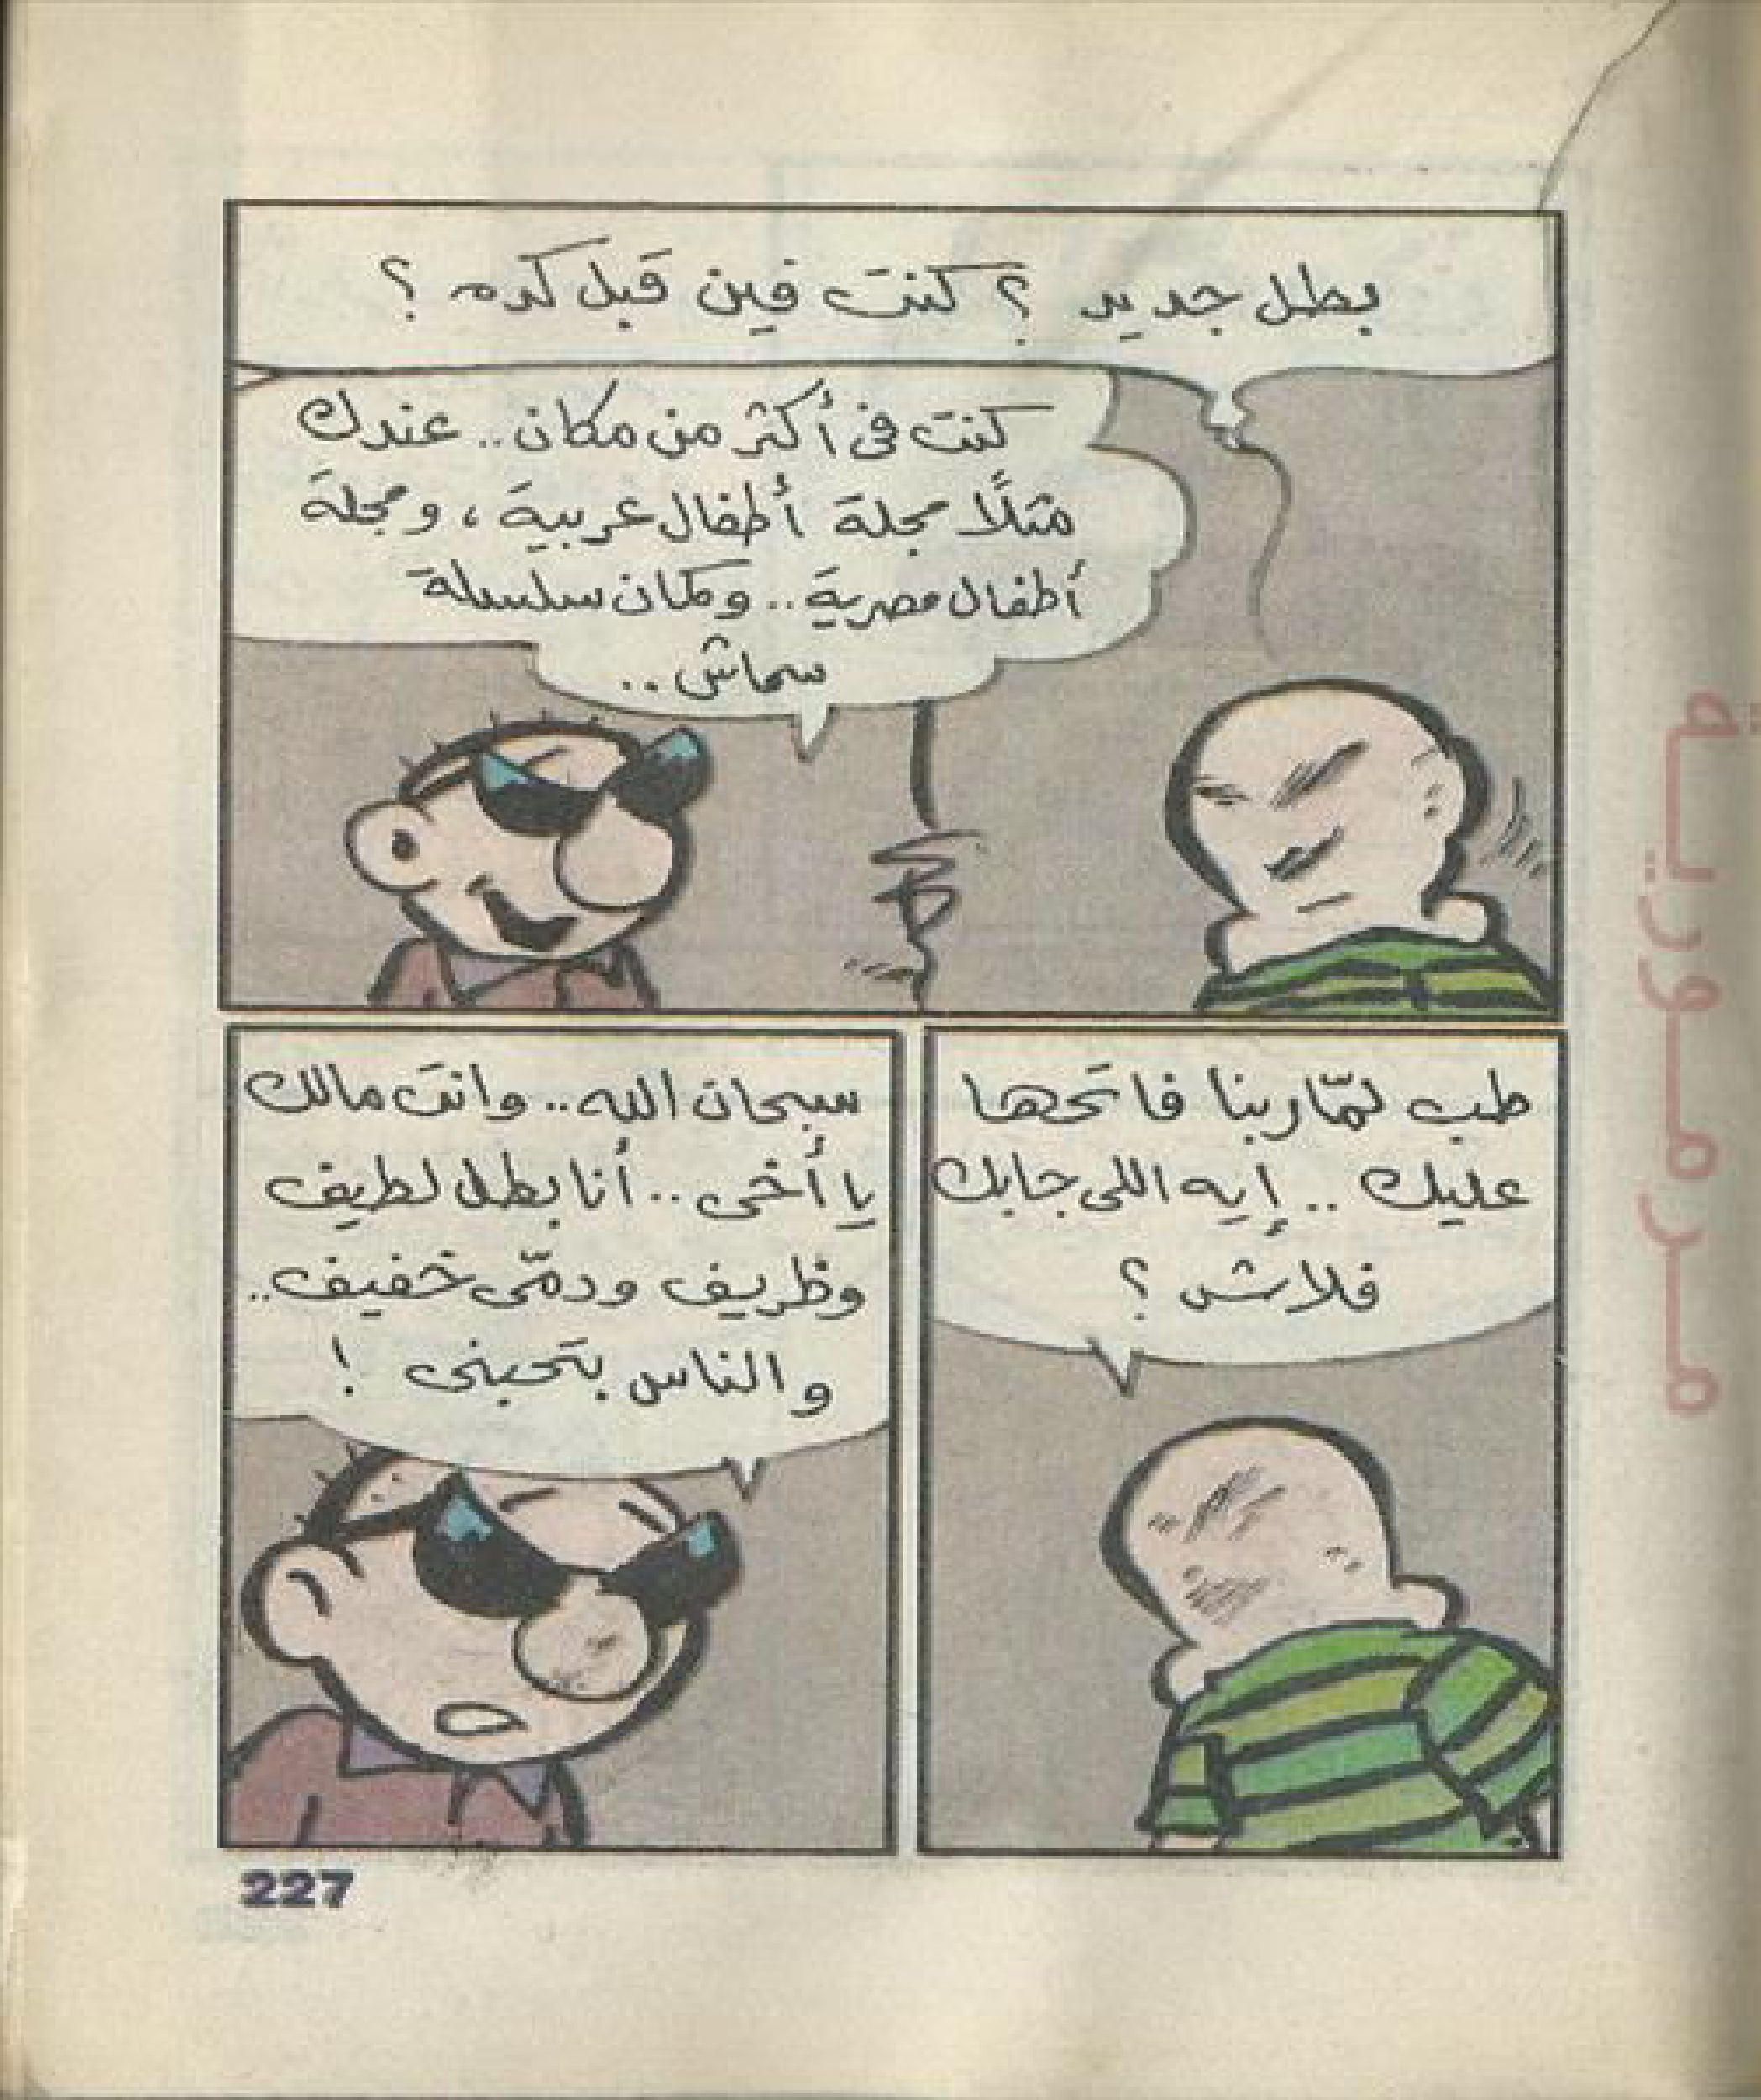 بطل جديد ؟ كنت فين قبل كده ؟
كنت فى أكثر من مكان .. عندك
مثلًا مجلة أطفال عربية ، ومجلة
أطفال مصرية .. ومكان سلسلة
سماش ..
طب لمّا ربنا فاتحها
عليك .. إيه اللى جابك
فلاش ؟
سبحان الله .. وانت مالك
يا أخى .. أنا بطل لطيف
وظريف ودمّى خفيف ..
والناس بتحبنى !
227
مرمورية